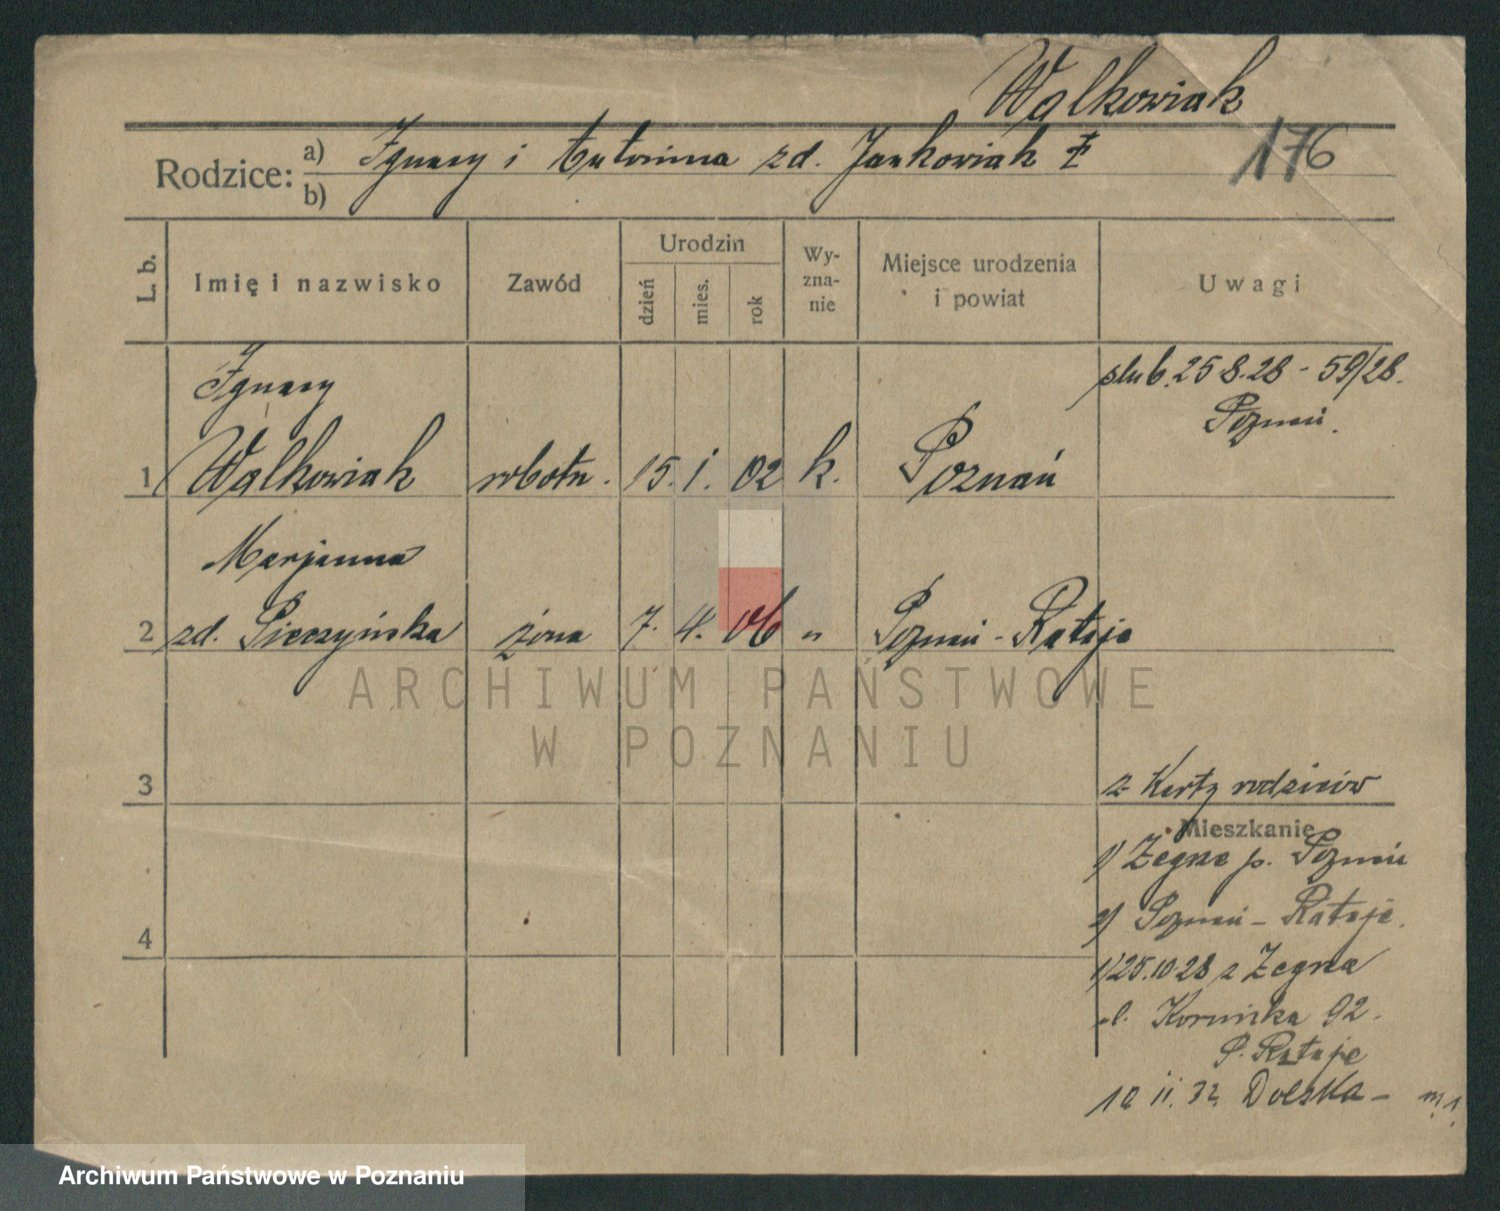 Walkowiak
Rodzice: a) Ignacy i Antonina zd. Jankowiak
176
b)
L. b.
Imię i nazwisko
Zawód
Urodzin
dzień
mies.
rok
Wy-
zna-
nie
Miejsce urodzenia
i powiat
Uwagi
ślub. 25 8. 28 - 59/28.
Poznań.
Ignacy
1 Walkowiak robotn. 15. i. 02 k. Poznań
Marjanna
2 zd. Pieczyńska żona 7. 4. 06 " Poznań - Rataje
ARCHIWUM PAŃSTWOWE
W POZNANIU
3
z Karty rodziców
Mieszkanie
1) Żegrze p. Poznań
2) Poznań - Rataje.
4
1) 25.10 28 z Żegrza
ul. Kórnicka 92.
P. Rataje
10 ii. 32. Dolska - m 1.
Archiwum Państwowe w Poznaniu